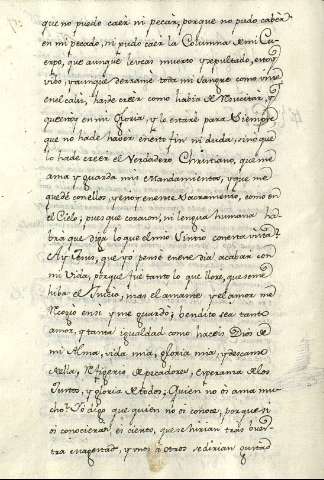 que no puede caer ni pecar, porque no pudo caber
en mi pecado, ni pudo caer la Columna de mi Cu-
erpo, que aunque le veas muerto y sepultado, estoy
vivo, y aunque derrame toda mi sangre como vino
en el caliz, haste creer como havia de resucitar, y
que estoy en mi Gloria, y lo estaré para siempre
que no hade haver en esto fin ni duda, sino que
lo hade creer el Verdadero Christiano, que me
ama y guarda mis Mandamientos, y que me
quedé con ellos, y estoy en este Sacramento, como en
el Cielo; pues que corazon, ni lengua humana ha-
bra que diga lo que el mio sintio con esta vista
Ay Jesus, que yo pensé en este dia acabar con
mi Vida, porque fue tanto lo que lloré, que se me
hiba el Juicio, mas el amante y el amor me
en si y me guardó; bendito sea tanto
amor, y tanta igualdad como haceis Dios de
mi Alma, vida mia, gloria mia, y descanso
de ella, Refugio de pecadores, esperanza de los
Justos, y gloria de todos; Quien no os ama mu-
cho? Yo digo que quien no os conoce, porque si
os conocieran es cierto, que se hirian tras vues-
tra Magestad, y unos a otros se dirian quitao